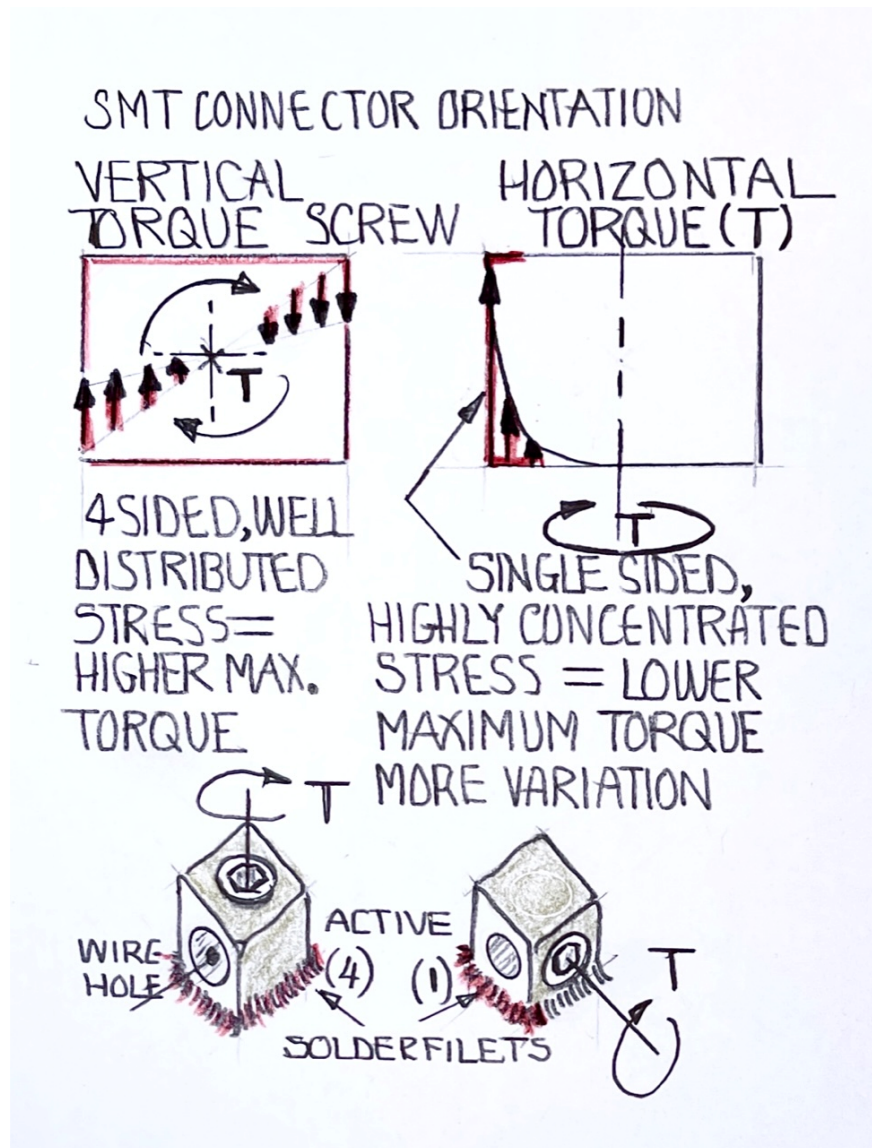 SMT CONNECTOR ORIENTATION
VERTICAL
TORQUE SCREW
HORIZONTAL
TORQUE (T)
T
T
4 SIDED, WELL
DISTRIBUTED
STRESS =
HIGHER MAX.
TORQUE
SINGLE SIDED,
HIGHLY CONCENTRATED
STRESS = LOWER
MAXIMUM TORQUE
MORE VARIATION
T
WIRE
HOLE
ACTIVE
(4) (1)
T
SOLDER FILETS